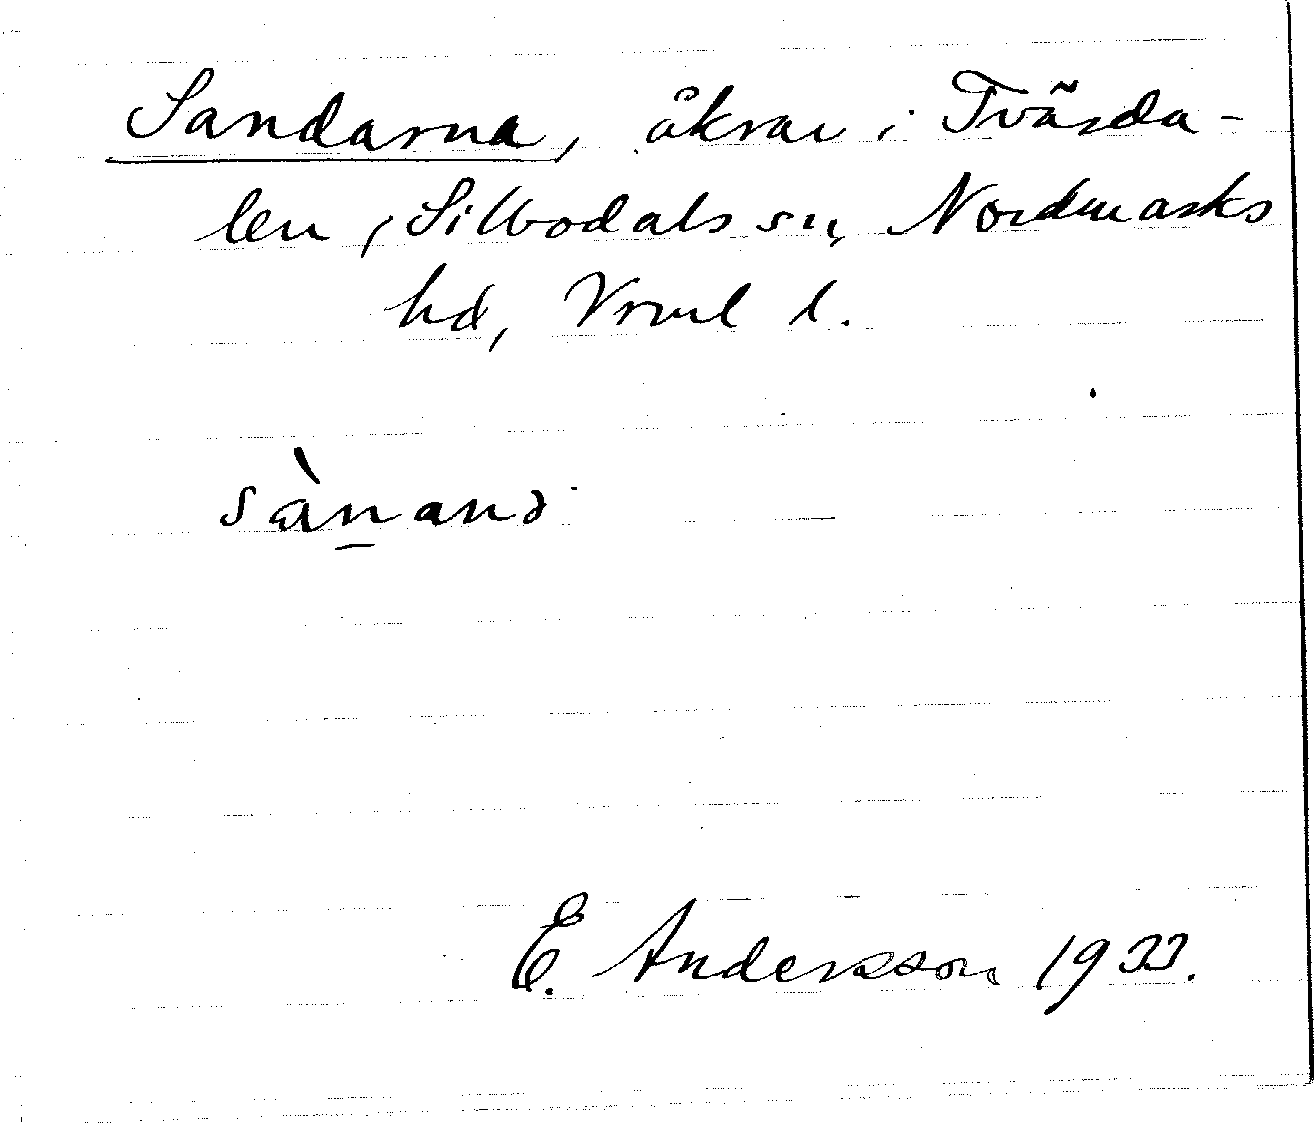 Sandarna, åkrar i Tvärda-
len, Silbodals sn, Nordmarks
hd, Vrml l.
sànanə
E. Andersson 1933.